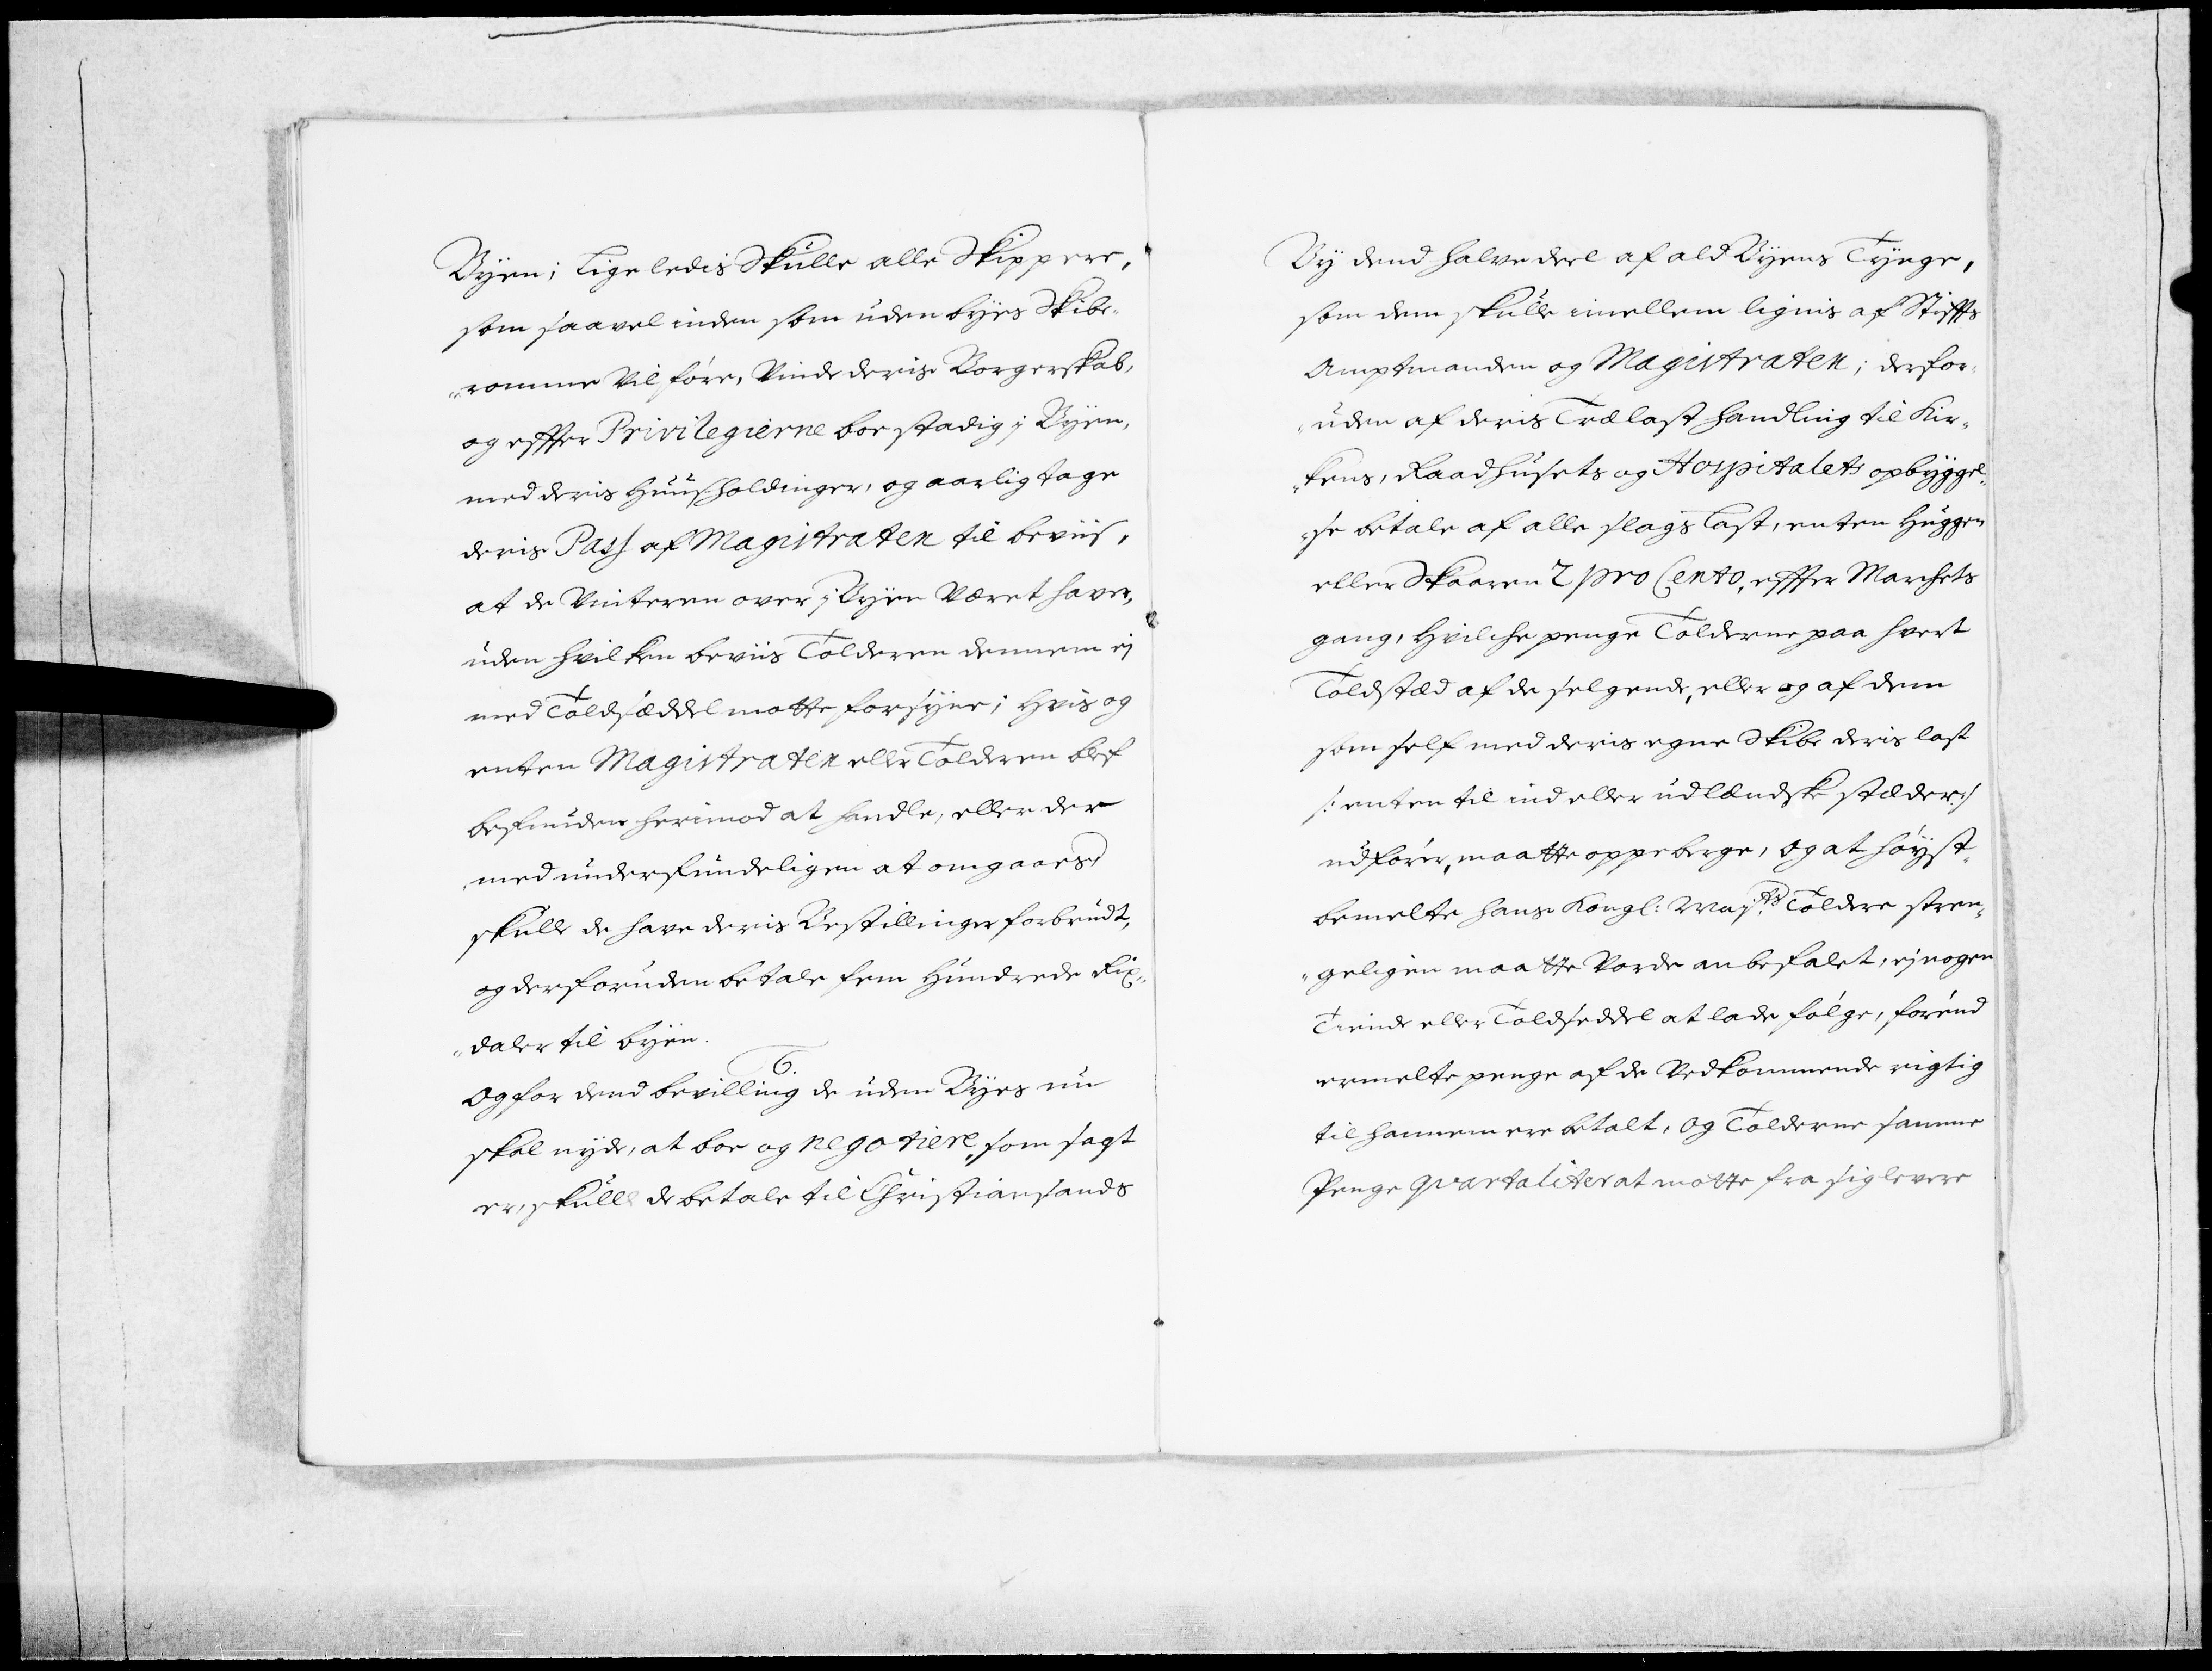 Byen; Ligeledis Skulle alle Skippere,
som saavel inden som uden byes Skibe¬
"romme vil føre, Vinde deris Borgerskab,
og effter Privilegierne boe stadig i Byen,
med deris Huusholdinger, og aarlig tage
deris Pass af Magistraten til beviis,
at de Vinteren over i Byen Været haver,
uden hvilken beviis Tolderen dennem ej
med Toldsæddel motte forsyne; Hvis og
enten Magistraten eller Tolderen blef
befunden herimod at handle, eller der
"med underfundeligen at omgaaes,
skulle de have deris Bestillinger forbrudt,
og derforuden betale fem Hundrede Rix¬
"daler til byen.
6.
Og for dend bevilling de uden Byes nu
skal nyde, at boe og negotiere, som sagt
er, skulle de betale til Christiansands
By dend halve deel af ald Byens Tynge,
som dem skulle imellem lignis af Stiffts
Amptmanden og Magistraten; derfor¬
"uden af deris Trælast handling til Kir¬
"kens, Raadhusets og Hospitalets opbyggel¬
"se betale af alle slags Last, enten Huggen
eller Skaaren 2 pro Cento, effter Marchets
gang, Hvilche penge Tolderne paa hvert
Toldstæd af de selgende, eller og af dem
som self med deris egne Skibe deris last
/: enten til ind eller udlændske stæder :/
udfører, maatte oppeberge, og at høyst¬
bemelte hans Kongl: Maj:ts Toldere stren¬
"geligen maatte Vorde anbefalet, ej nogen
Tiende eller Toldseddel at lade følge, førend
ermelte penge af de Vedkommende rigtig
til hannem ere betalt, og Tolderne samme
Penge qvartaliter at motte fra sig levere